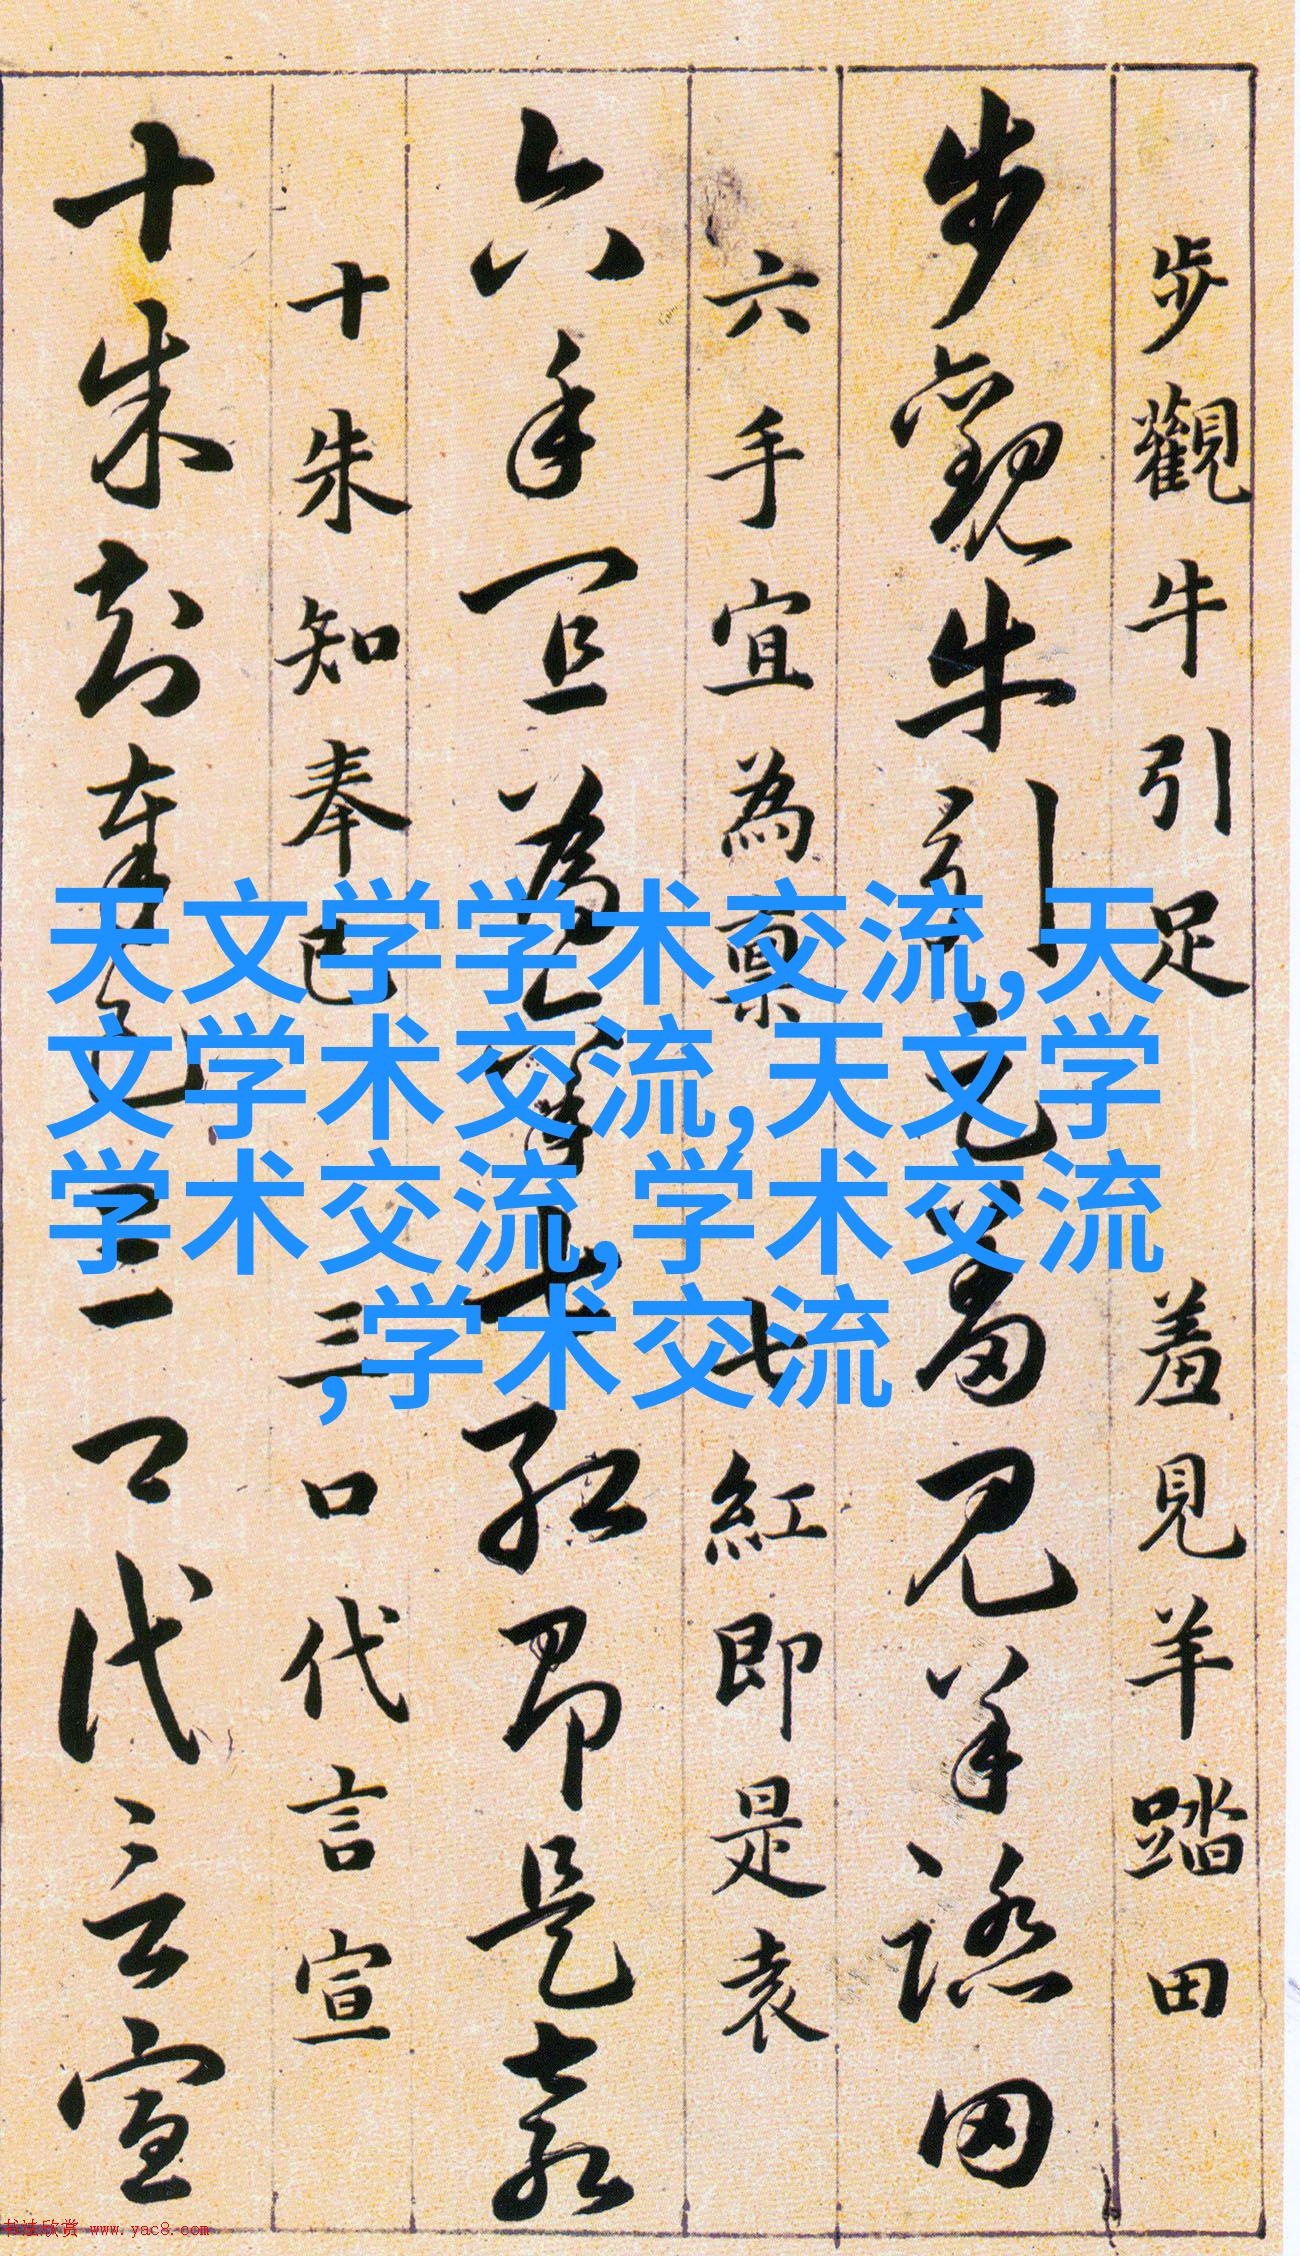 步觀牛引足 羞見羊踏田
步觀牛引足羞見羊踏田
六手宜為稟 七紅即是袁
六手宜為稟七紅即是袁
十朱知奉已 三口代言宣
十朱知奉已三口代言宣
天文学学术交流,天
文学术交流,天文学
学术交流,学术交流
,学术交流
书法欣赏 www.yac8.com